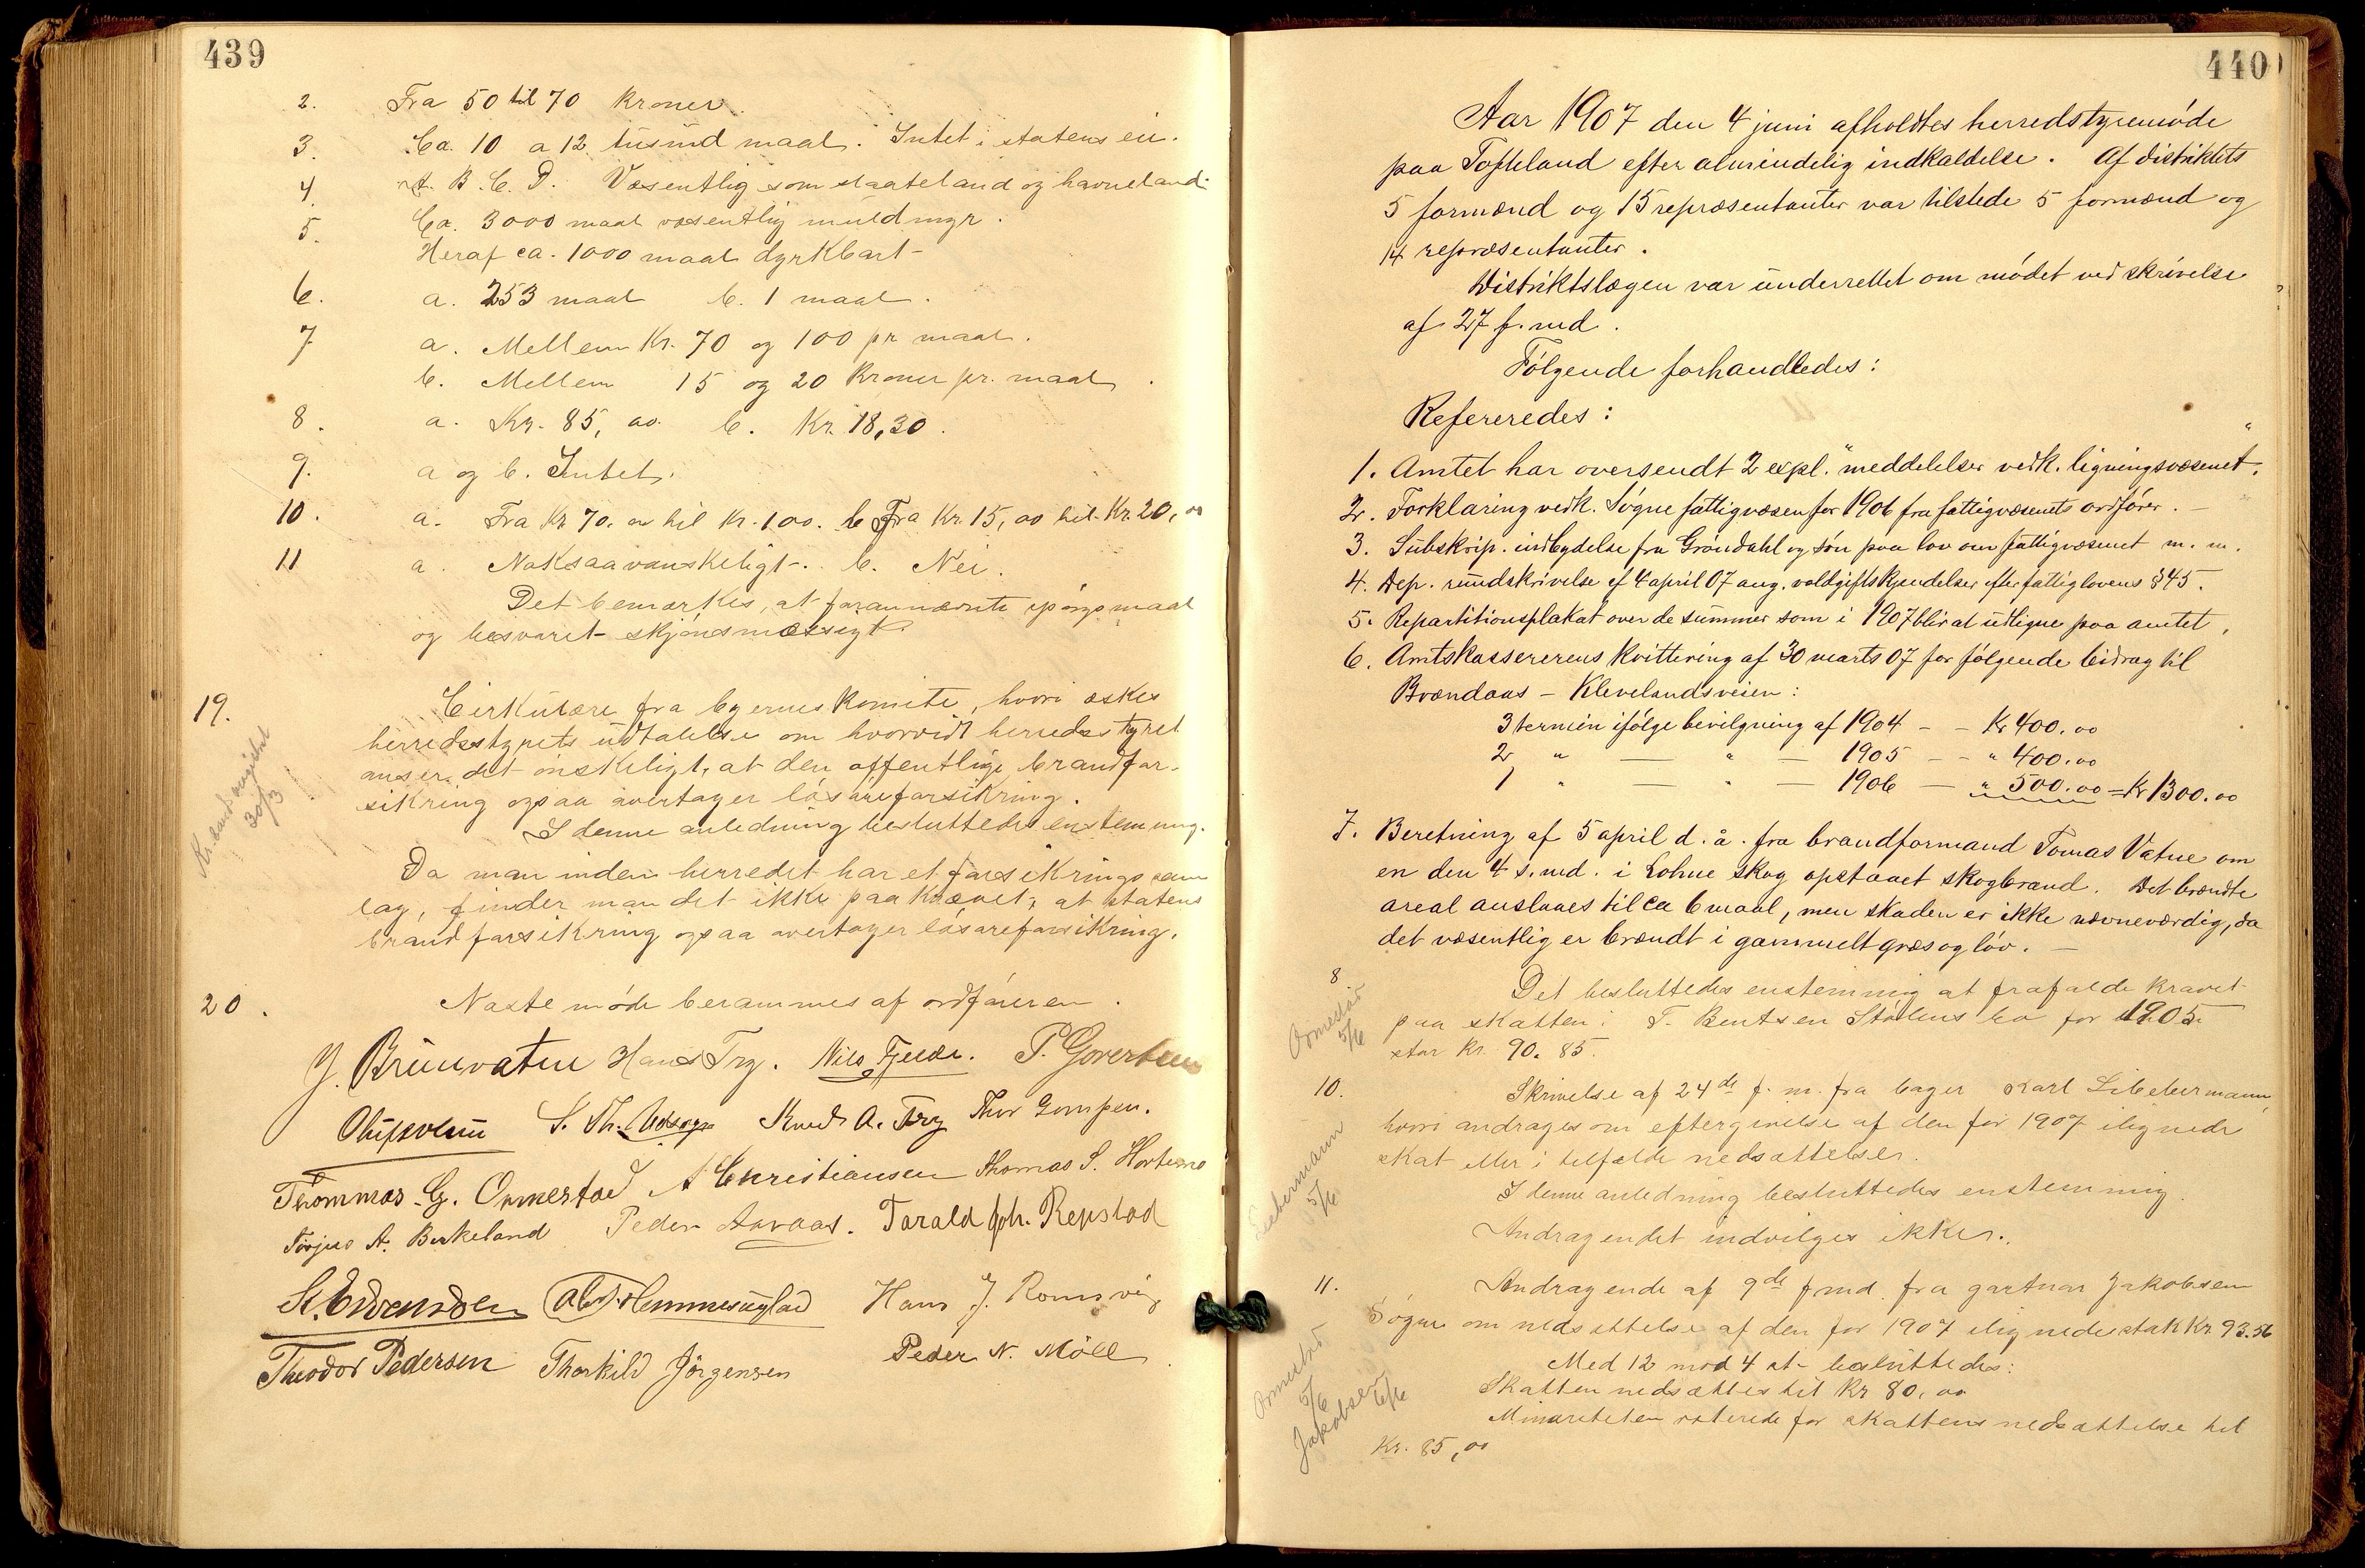 439
2. Fra 50 til 70 kroner.
3. Ca. 10 a 12 tusind maal. Intet i statens eie.
4. A. B. C. D. Væsentlig som slaateland og havneland.
5. Ca. 3000 maal væsentlig muldmyr.
Heraf ca. 1000 maal dyrkbart
6. a. 253 maal b. 1 maal.
7 a. Mellem Kr. 70 og 100 pr maal.
b. Mellem 15 og 20 Kroner pr. maal.
8. a. Kr. 85,00. b. Kr. 18,30.
9. a og b. Intet.
10. a. Fra Kr 70,00 til Kr. 100. b Fra Kr. 15,00 til Kr. 20,00
11 a. Noksaa vanskeligt. b. Nei.
Det bemærkes, at forannævnte spørgsmaal
og besvaret skjønsmæssigt.
19. Cirkulære fra byernes komite, hvori æskes
herredsstyrets udtalelse om hvorvidt herredsstyret
anser det ønskeligt, at den offentlige brandfor-
sikring ogsaa overtager løsøreforsikring.
I denne anledning besluttedes enstemmig.
Da man inden herredet har et forsikrings sam
lag, finder man det ikke paakrævet, at statens
brandforsikring ogsaa overtager løsøreforsikring.
20. Næste møde berammes af ordføreren.
J. Brunvatne Hans Try. Nils Fjelde. P. Goverten
S. Th. Knud A. Try Thor Gompen.
Thommas G. Ormestad A Christiansen Thomas S. Hortemo
Torjus A. Birkeland Peder Aavaas. Tarald Joh. Repstad
St. Edvendsen Hans J. Romsvig
Theodor Pedersen Thorkild Jørgensen Peder N. Möll
30/3
440
Aar 1907 den 4 juni afholdtes herredstyremøde
paa Tofteland efter almindelig indkaldelse. Af distriktets
5 formænd og 15 repræsentanter var tilstede 5 formænd og
14 repræsentanter.
Distriktslægen var underrettet om mødet ved skrivelse
af 27 f. md.
Følgende forhandledes:
Refereredes:
1. Amtet har oversendt 2 expl. "meddelelser vedk. ligningsvæsenet."
2. Forklaring vedk. Søgne fattigvæsen for 1906 fra fattigvæsenets ordfører.
3. Subskrip. indbydelse fra Grøndahl og søn paa lov om fattigvæsenet m. m.
4. Dep. rundskrivelse af 4 april 07 ang. voldgiftskjendelser efter fattiglovens § 45.
5. Repartitionsplakat over de summer som i 1907 blir at udligne paa amtet,
6. Amtskassererens kvittering af 30 marts 07 for følgende bidrag til
Brændaas - Klevelandsveien:
3 termin ifølge bevilgning af 1904 - - Kr 400.00
2 " — " — 1905 - - " 400.00
1 " — " — 1906 — " 500.00 = Kr 1300.00
7. Beretning af 5 april d. å. fra brandformand Tomas Vatne om
en den 4 s. md. i Lohne skog opstaaet skogbrand. Det brændte
areal anslaaes til ca 6 maal, men skaden er ikke nævneværdig, da
det væsentlig er brændt i gammelt græs og løv. —
8 Det besluttedes enstemmig at frafalde kravet
paa skatten i T. Bentsen Stølens bo for 1905
stor Kr. 90.85.
Ormestad
5/6
10. Skrivelse af 24de f. m. fra bager Karl Libebermann,
hvori andrages om eftergivelse af den for 1907 ilignede
skat eller i tilfælde nedsættelser.
I denne anledning besluttedes enstemmig.
Andragendet indvilges ikke.
Liebermann
5/6
11. Andragende af 9de f md. fra gartner Jakobsen
Søgne om nedsættelse af den for 1907 ilignede skat Kr. 93.56
Med 12 mod 4 st. besluttedes:
Skatten nedsættes til Kr 80,00
Minoriteten voterede for skattens nedsættelse til
Kr. 85,00
Ormestad
5/6
Jakobsen
6/6